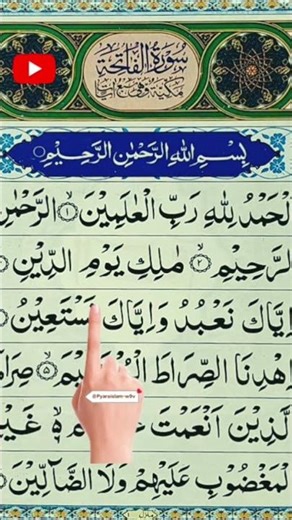 سُوْرَةُ الْفَاتِحَةِ
مَكِّيَّةٌ وَهِيَ سَبْعُ اٰيَاتٍ
بِسْمِ اللهِ الرَّحْمٰنِ الرَّحِيْمِ
لْحَمْدُ لِلّٰهِ رَبِّ الْعٰلَمِيْنَ ۝١ الرَّحْمٰنِ
الرَّحِيْمِ ۝٢ مٰلِكِ يَوْمِ الدِّيْنِ
اِيَّاكَ نَعْبُدُ وَاِيَّاكَ نَسْتَعِيْنُ
اِهْدِنَا الصِّرَاطَ ۝٥ صِرَا
لَّذِيْنَ اَنْعَمْتَ غَيْ
لْمَغْضُوْبِ عَلَيْهِمْ وَلَا الضَّآلِّيْنَ
@Pyaraislam-w9v